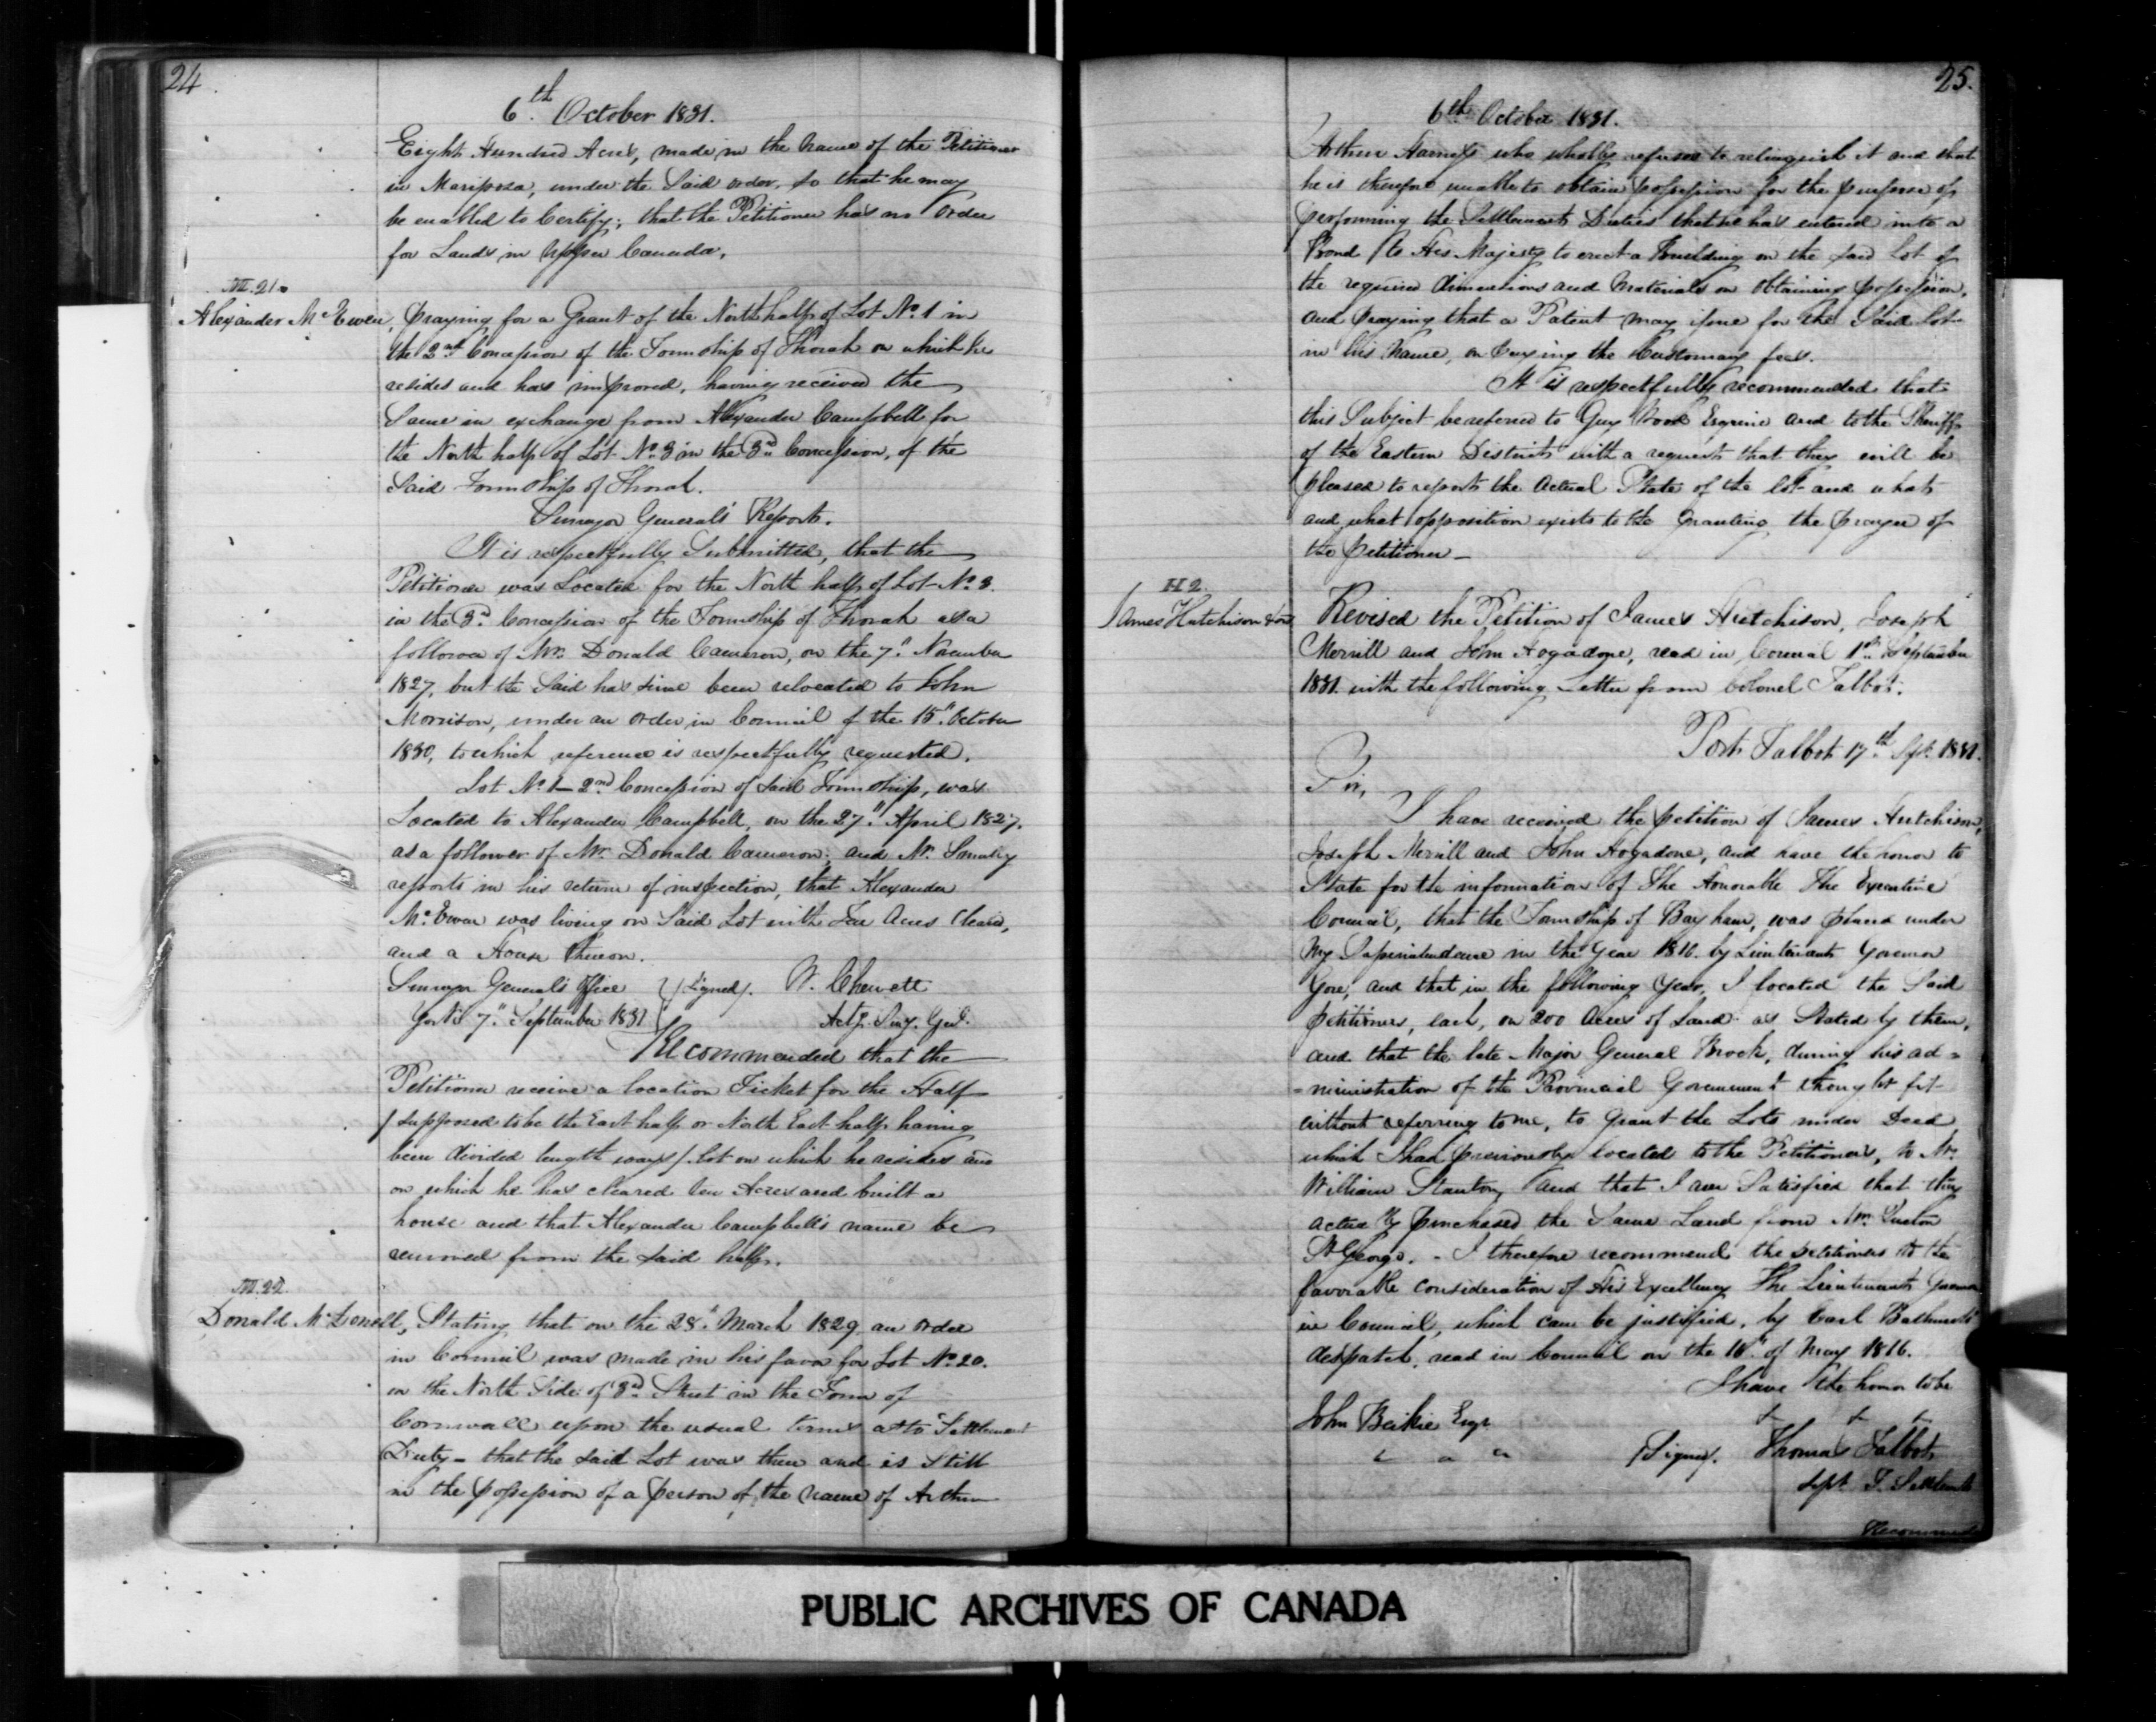 24
6th October 1831.
Eight Hundred Acres, made in the Name of the Petitioner
in Mariposa, under the Said order, so that he may
be enabled to Certify, that the Petitioner has no Order
for Lands in Upper Canada.
M. 21.
Alexander McEwen, Praying for a Grant of the North half of Lot No. 1 in
the 2nd Concession of the Township of Thorah on which he
resides and has improved, having received the
Same in exchange from Alexander Campbell for
the North half of Lot No. 3 in the 3rd Concession, of the
Said Township of Thorah.
Surveyor General's Report.
It is respectfully Submitted, that the
Petitioner was Located for the North half of Lot No. 3.
in the 3d. Concession of the Township of Thorah as a
follower of Mr. Donald Cameron, on the 7" November
1827, but the Said has since been relocated to John
Morrison, under an Order in Council of the 15" October
1830, to which reference is respectfully requested.
Lot No. 1 - 2nd Concession of Said Township, was
Located to Alexander Campbell, on the 27" April 1827.
as a follower of Mr. Donald Cameron. and Mr.
reports in his return of inspection, that Alexander
McEwen was living on Said Lot with Ten Acres Cleared,
and a House thereon.
Surveyor General's Office } (Signed). W. Chewett
York 7" September 1831 } Actg. Surv. Genl.
Recommended that the
Petitioner receive a location Ticket for the Half
(supposed to be the East half or North East half having
been divided length ways). Lot on which he resides and
on which he has cleared ten Acres and built a
house and that Alexander Campbell's name be
removed from the said half.
M. 22.
Donald McDonell, Stating that on the 28" March 1829 an Order
in Council was made in his favor for Lot No. 20.
on the North Side of 3d. Street in the Town of
Cornwall upon the usual terms as to Settlement
Duty - that the said Lot was then and is Still
in the possession of a person of the name of Arthur
25.
6th October 1831.
Arthur who wholly refuses to relinquish it and that
he is therefore unable to obtain possession for the purpose of
performing the Settlement Duties that he has entered into a
Bond to His Majesty to erect a Building on the said Lot of
the required dimensions and Materials on Obtaining possession,
and Praying that a Patent may issue for the Said Lot
in his Name, on paying the Customary fees.
It is respectfully recommended that
this Subject be referred to Guy Wood Esquire and to the Sheriff
of the Eastern District with a request that they will be
pleased to report the Actual State of the lot and what
and what opposition exists to the Granting the prayer of
the Petitioner -
H 2.
James Hutchison & ors Revised the Petition of James Hutchison, Joseph
Merrill and John Hogadone, read in Council 1st September
1831. with the following Letter from Colonel Talbot.
Port Talbot 17th Sept. 1831.
Sir,
I have received the petition of James Hutchison,
Joseph Merrill and John Hogadone, and have the honor to
State for the information of The Honorable The Executive
Council, that the Township of Bayham, was placed under
My Superintendence in the Year 1816. by Lieutenant Governor
Gore, and that in the following Year, I located the Said
petitioners, each, on 200 Acres of Land as Stated by them,
and that the late Major General Brock, during his ad=
=ministration of the Provincial Government thought fit
without referring to me, to Grant the Lots under Deed
which I had previously located to the Petitioners, to Mr.
William Stanton, and that I am Satisfied that they
actually purchased the Same Land from Mr. Quetton
St George. - I therefore recommend the petitioners to the
favorable consideration of His Excellency The Lieutenant Governor
in Council, which can be justified, by Earl Bathurst's
despatch, read in Council on the 10" of May 1816.
I have the honor to be
John Beikie Esqr
(Signed). Thomas Talbot
Supt. T. Settlemt
Recommend
PUBLIC ARCHIVES OF CANADA